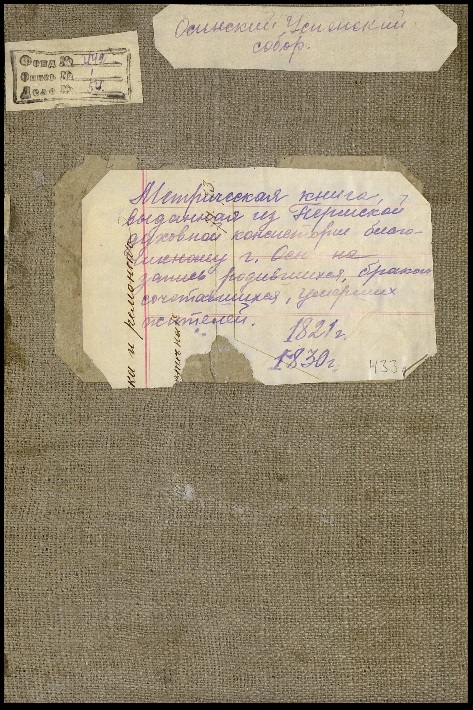 Осинский Успенский
собор.
Фонд №
Опись № 1
Дело №
Метрическая книга,
выданная из Пермской
духовной консистории благо-
чинному г. Осы на
запись родившихся, браком
сочетавшихся, умерших
жителей.
1821г.
1830г.
433
ка и романов